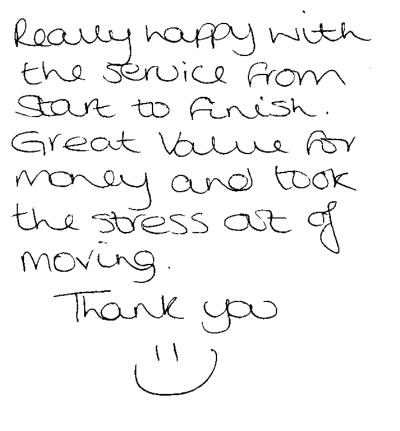 Really happy with
the service from
Start to finish.
Great Value for
money and took
the stress out of
moving.
Thank you